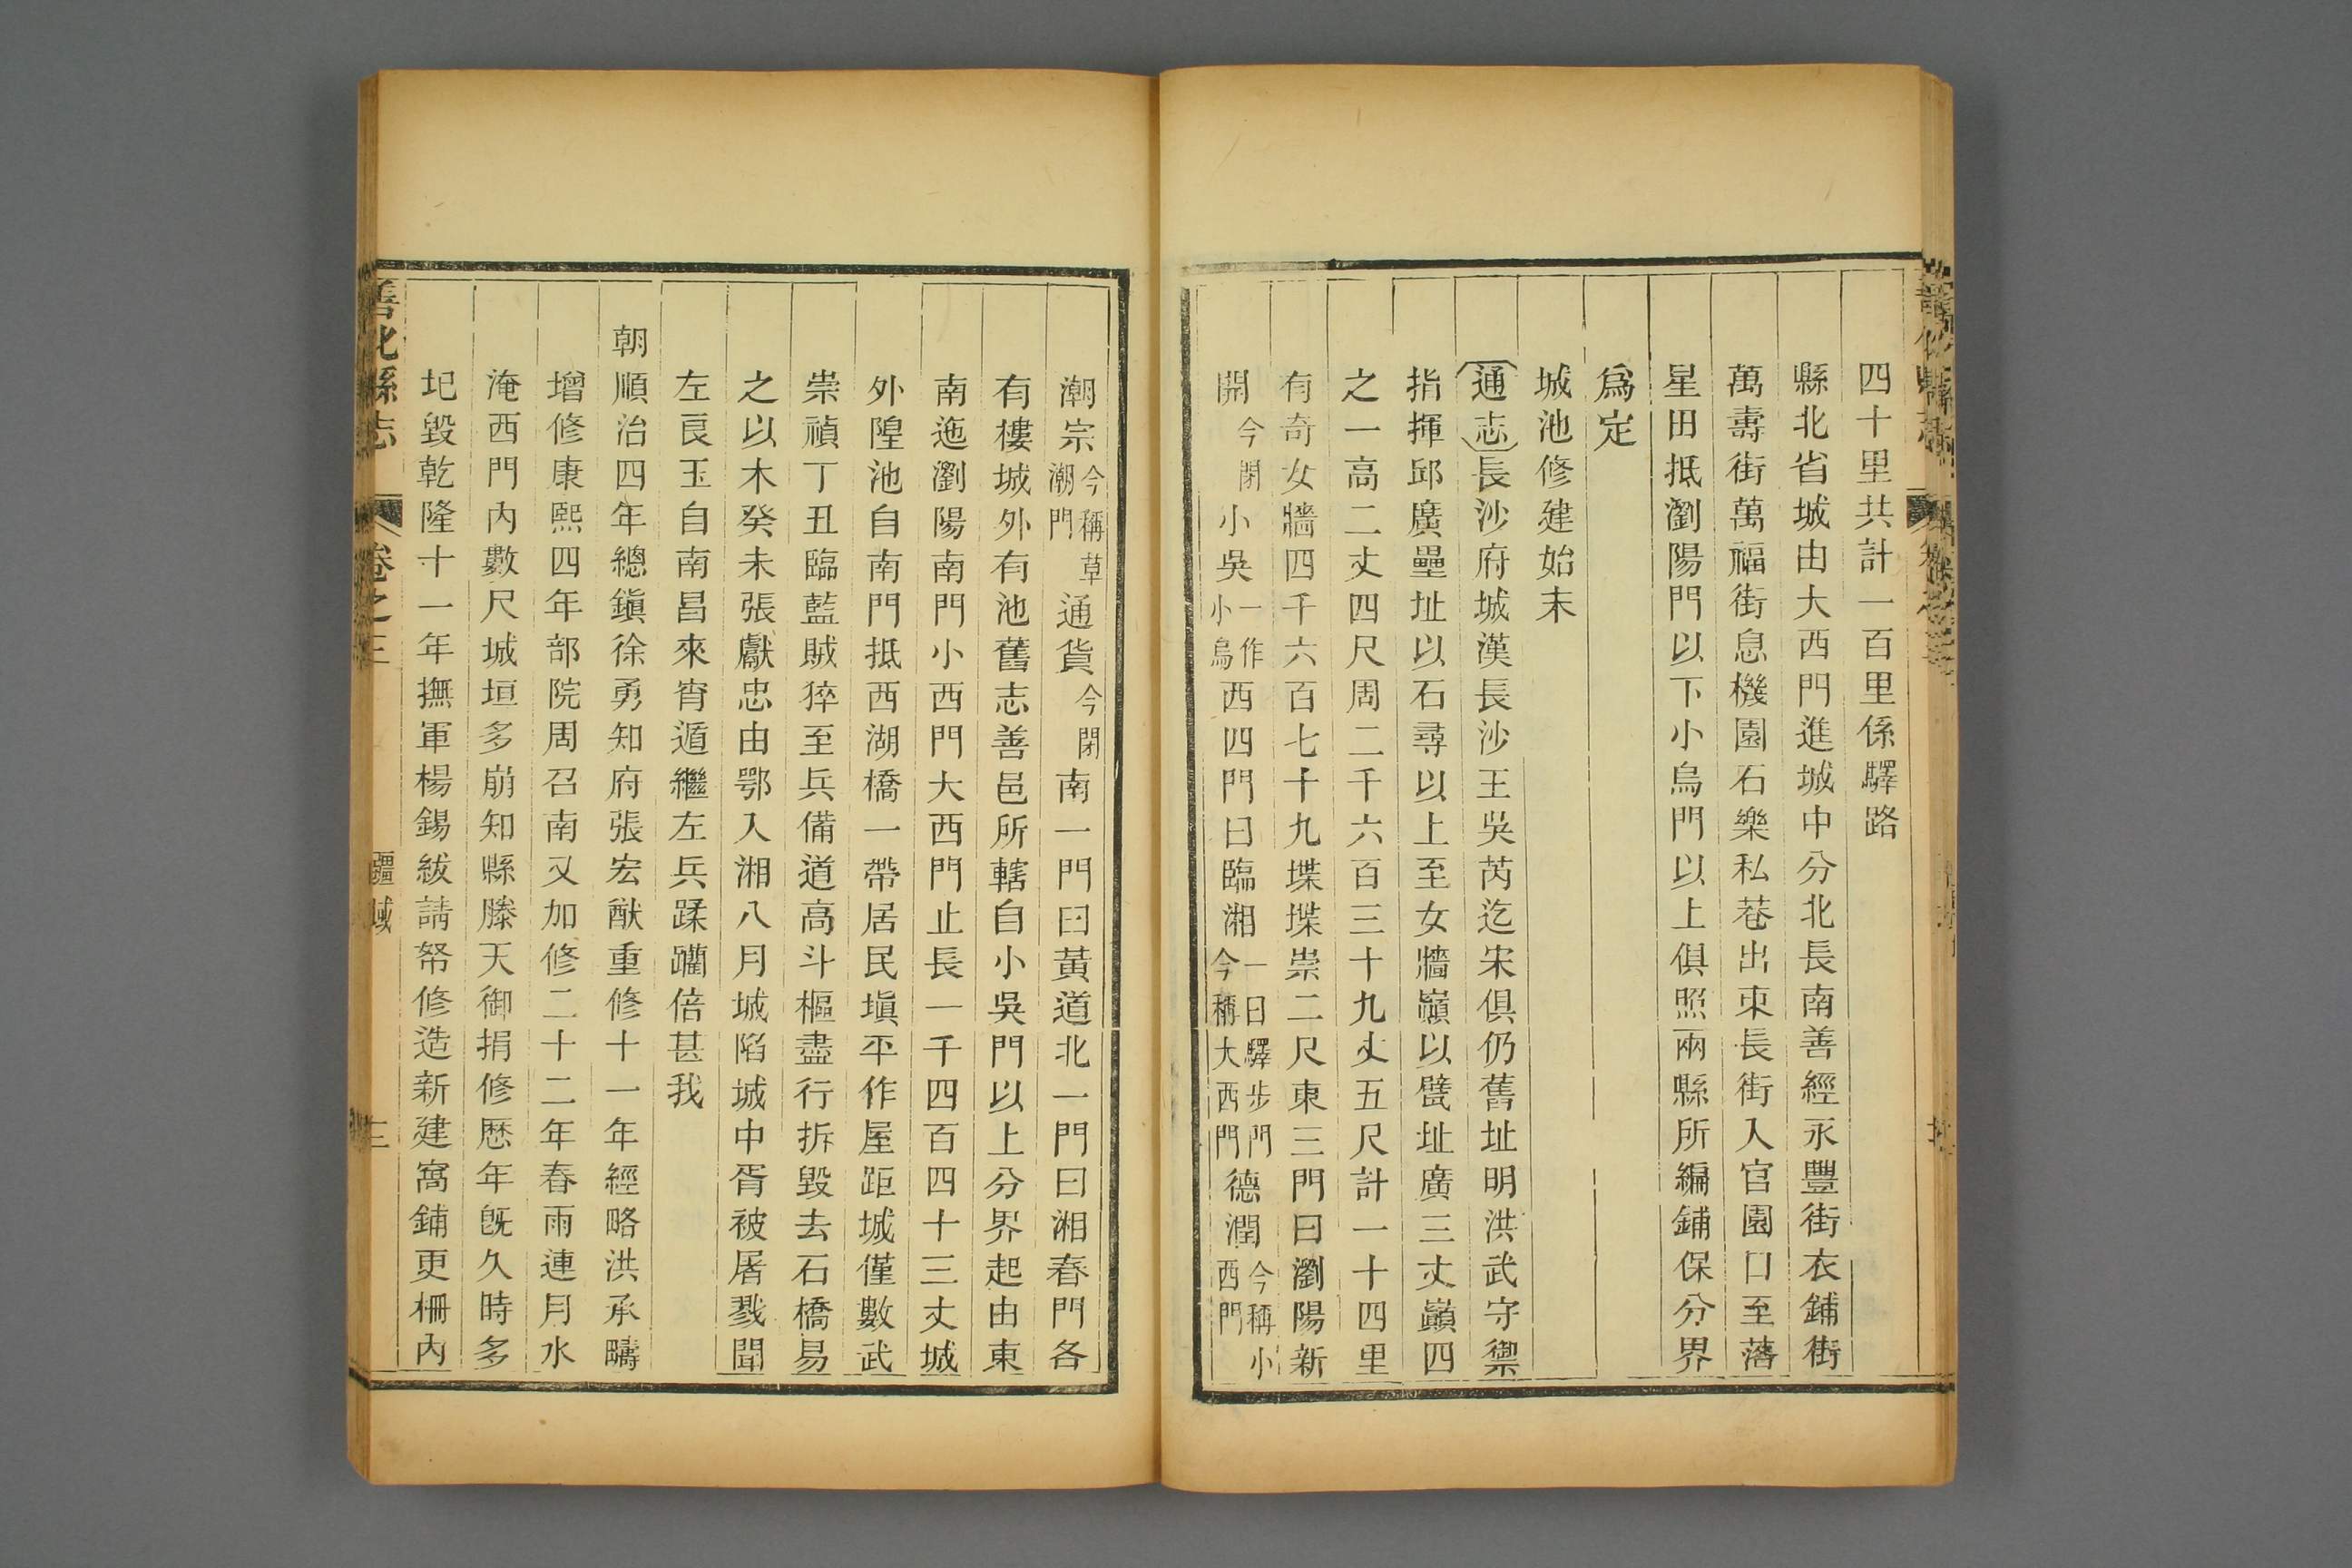 四十里共計一百里係驛路
縣北省城由大西門進城中分北長南善經永豐街衣鋪街
萬壽街萬福街息機園石樂私巷出東長街入官園口至藩
星田抵瀏陽門以下小烏門以上俱照兩縣所編鋪保分界
爲定
城池修建始末
通志長沙府城漢長沙王吳芮迄宋俱仍舊址明洪武守禦
指揮邱廣壘址以石尋以上至女牆巔以甓址廣三丈巔四
之一高二丈四尺周二千六百三十九丈五尺計一十四里
有奇女牆四千六百七十九堞堞崇二尺東三門曰瀏陽新
開今閉小吳一作小烏西四門曰臨湘一曰驛步門今稱大西門德潤今稱小西門
潮宗今稱草潮門通貨今閉南一門曰黃道北一門曰湘春門各
有樓城外有池舊志善邑所轄自小吳門以上分界起由東
南迤瀏陽南門小西門大西門止長一千四百四十三丈城
外隍池自南門抵西湖橋一帶居民塡平作屋距城僅數武
崇禎丁丑臨藍賊猝至兵備道高斗樞盡行拆毀去石橋易
之以木癸未張獻忠由鄂入湘八月城陷城中胥被屠戮聞
左良玉自南昌來宵遁繼左兵蹂躪倍甚我
朝順治四年總鎭徐勇知府張宏猷重修十一年經略洪承疇
增修康熙四年部院周召南又加修二十二年春雨連月水
淹西門內數尺城垣多崩知縣滕天御捐修歷年旣久時多
圮毀乾隆十一年撫軍楊錫紱請帑修造新建窩鋪更柵內
善化縣志 卷之三 疆域 三